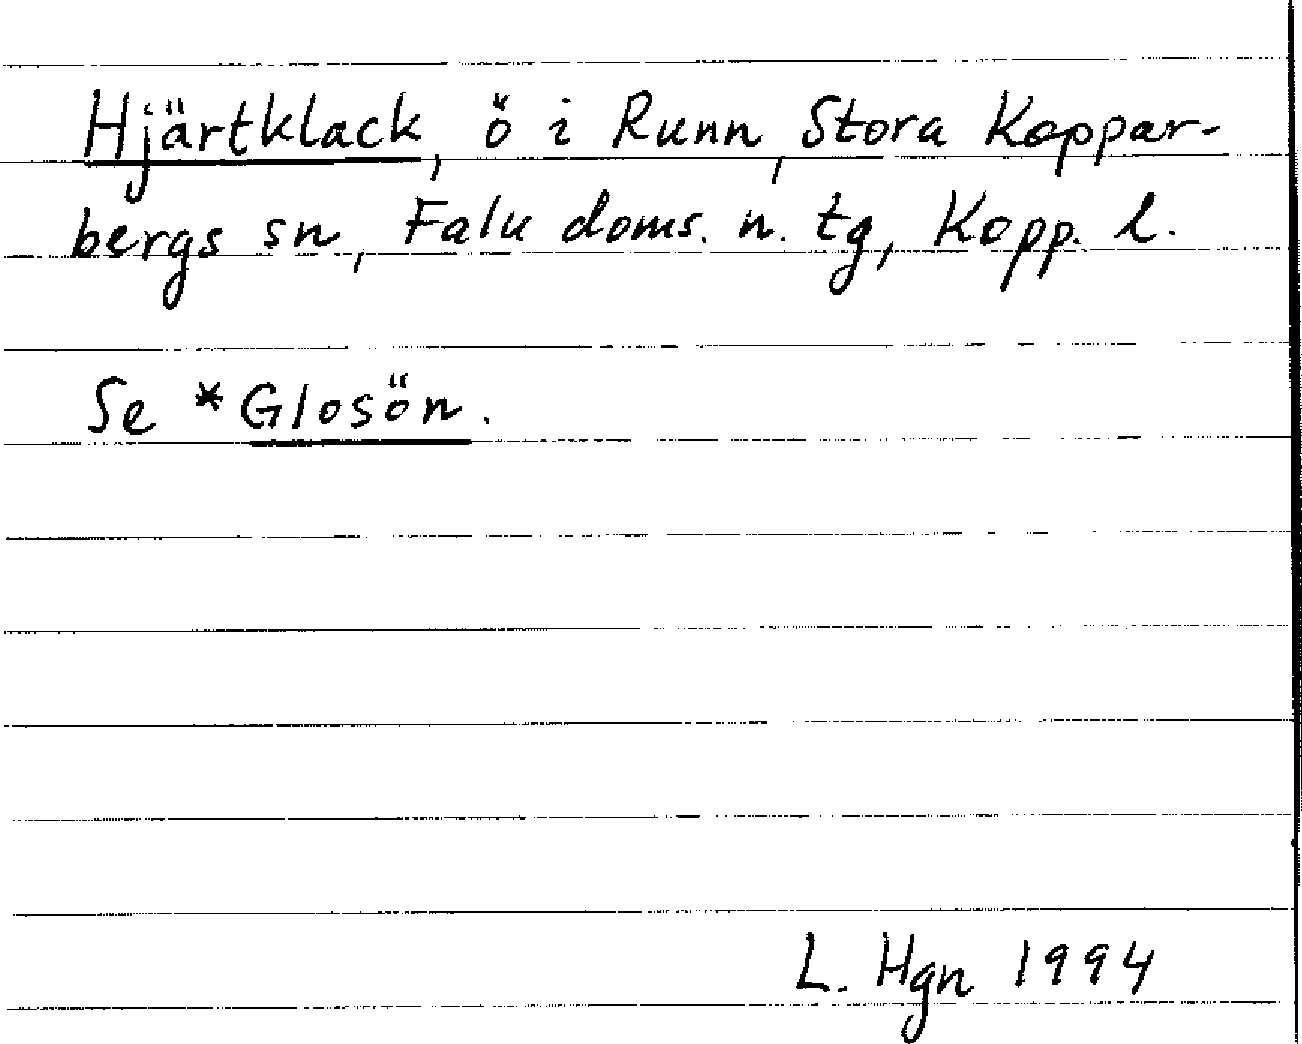 Hjärtklack, ö i Runn, Stora Koppar-
bergs sn, Falu doms. n. tg, Kopp. l.
Se *Glosön.
L. Hgn 1994